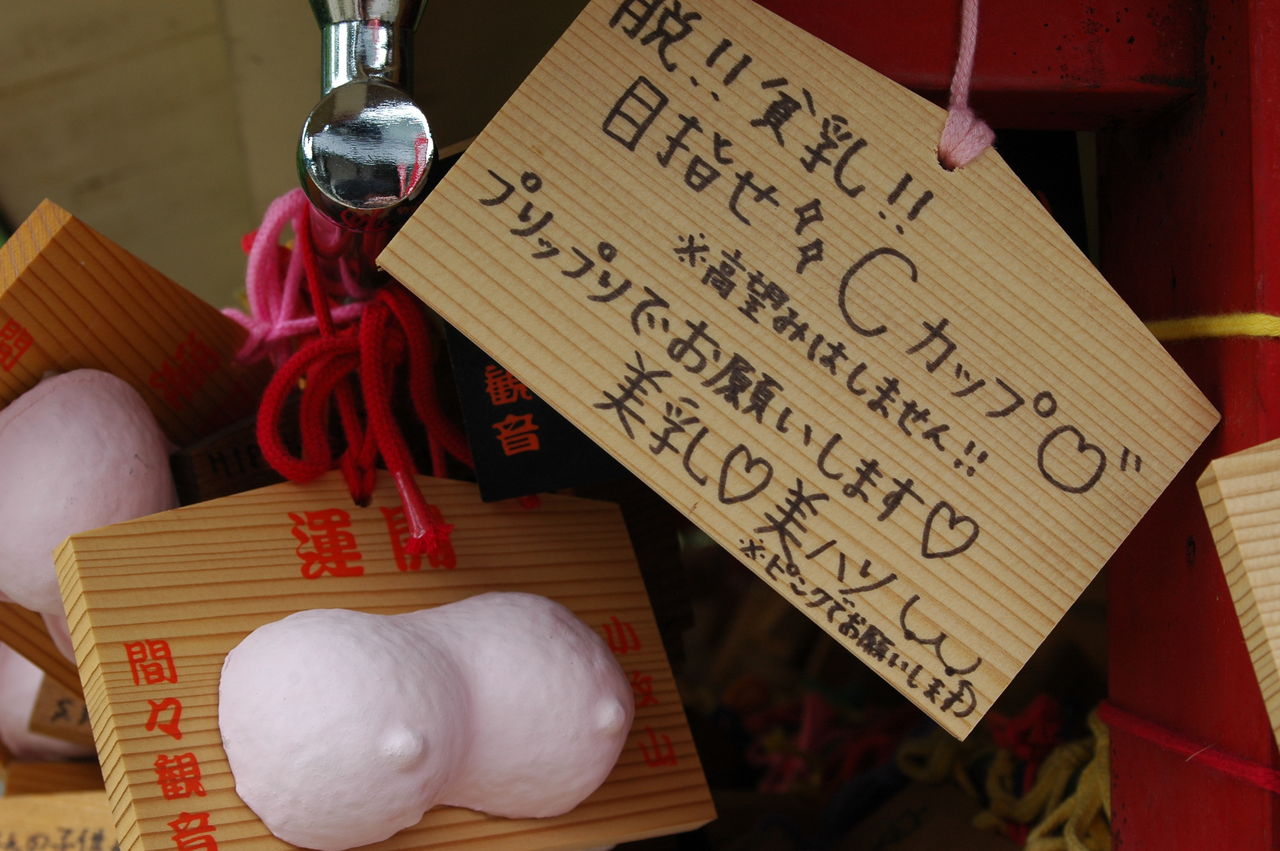 脱!!貧乳!!
目指せ多々Cカップ♡"
※高望みはしません!!
プリップリでお願いします♡
美乳♡美ハツ
※ピンクでお願いします
開運
間々観音
小牧山
観音
間